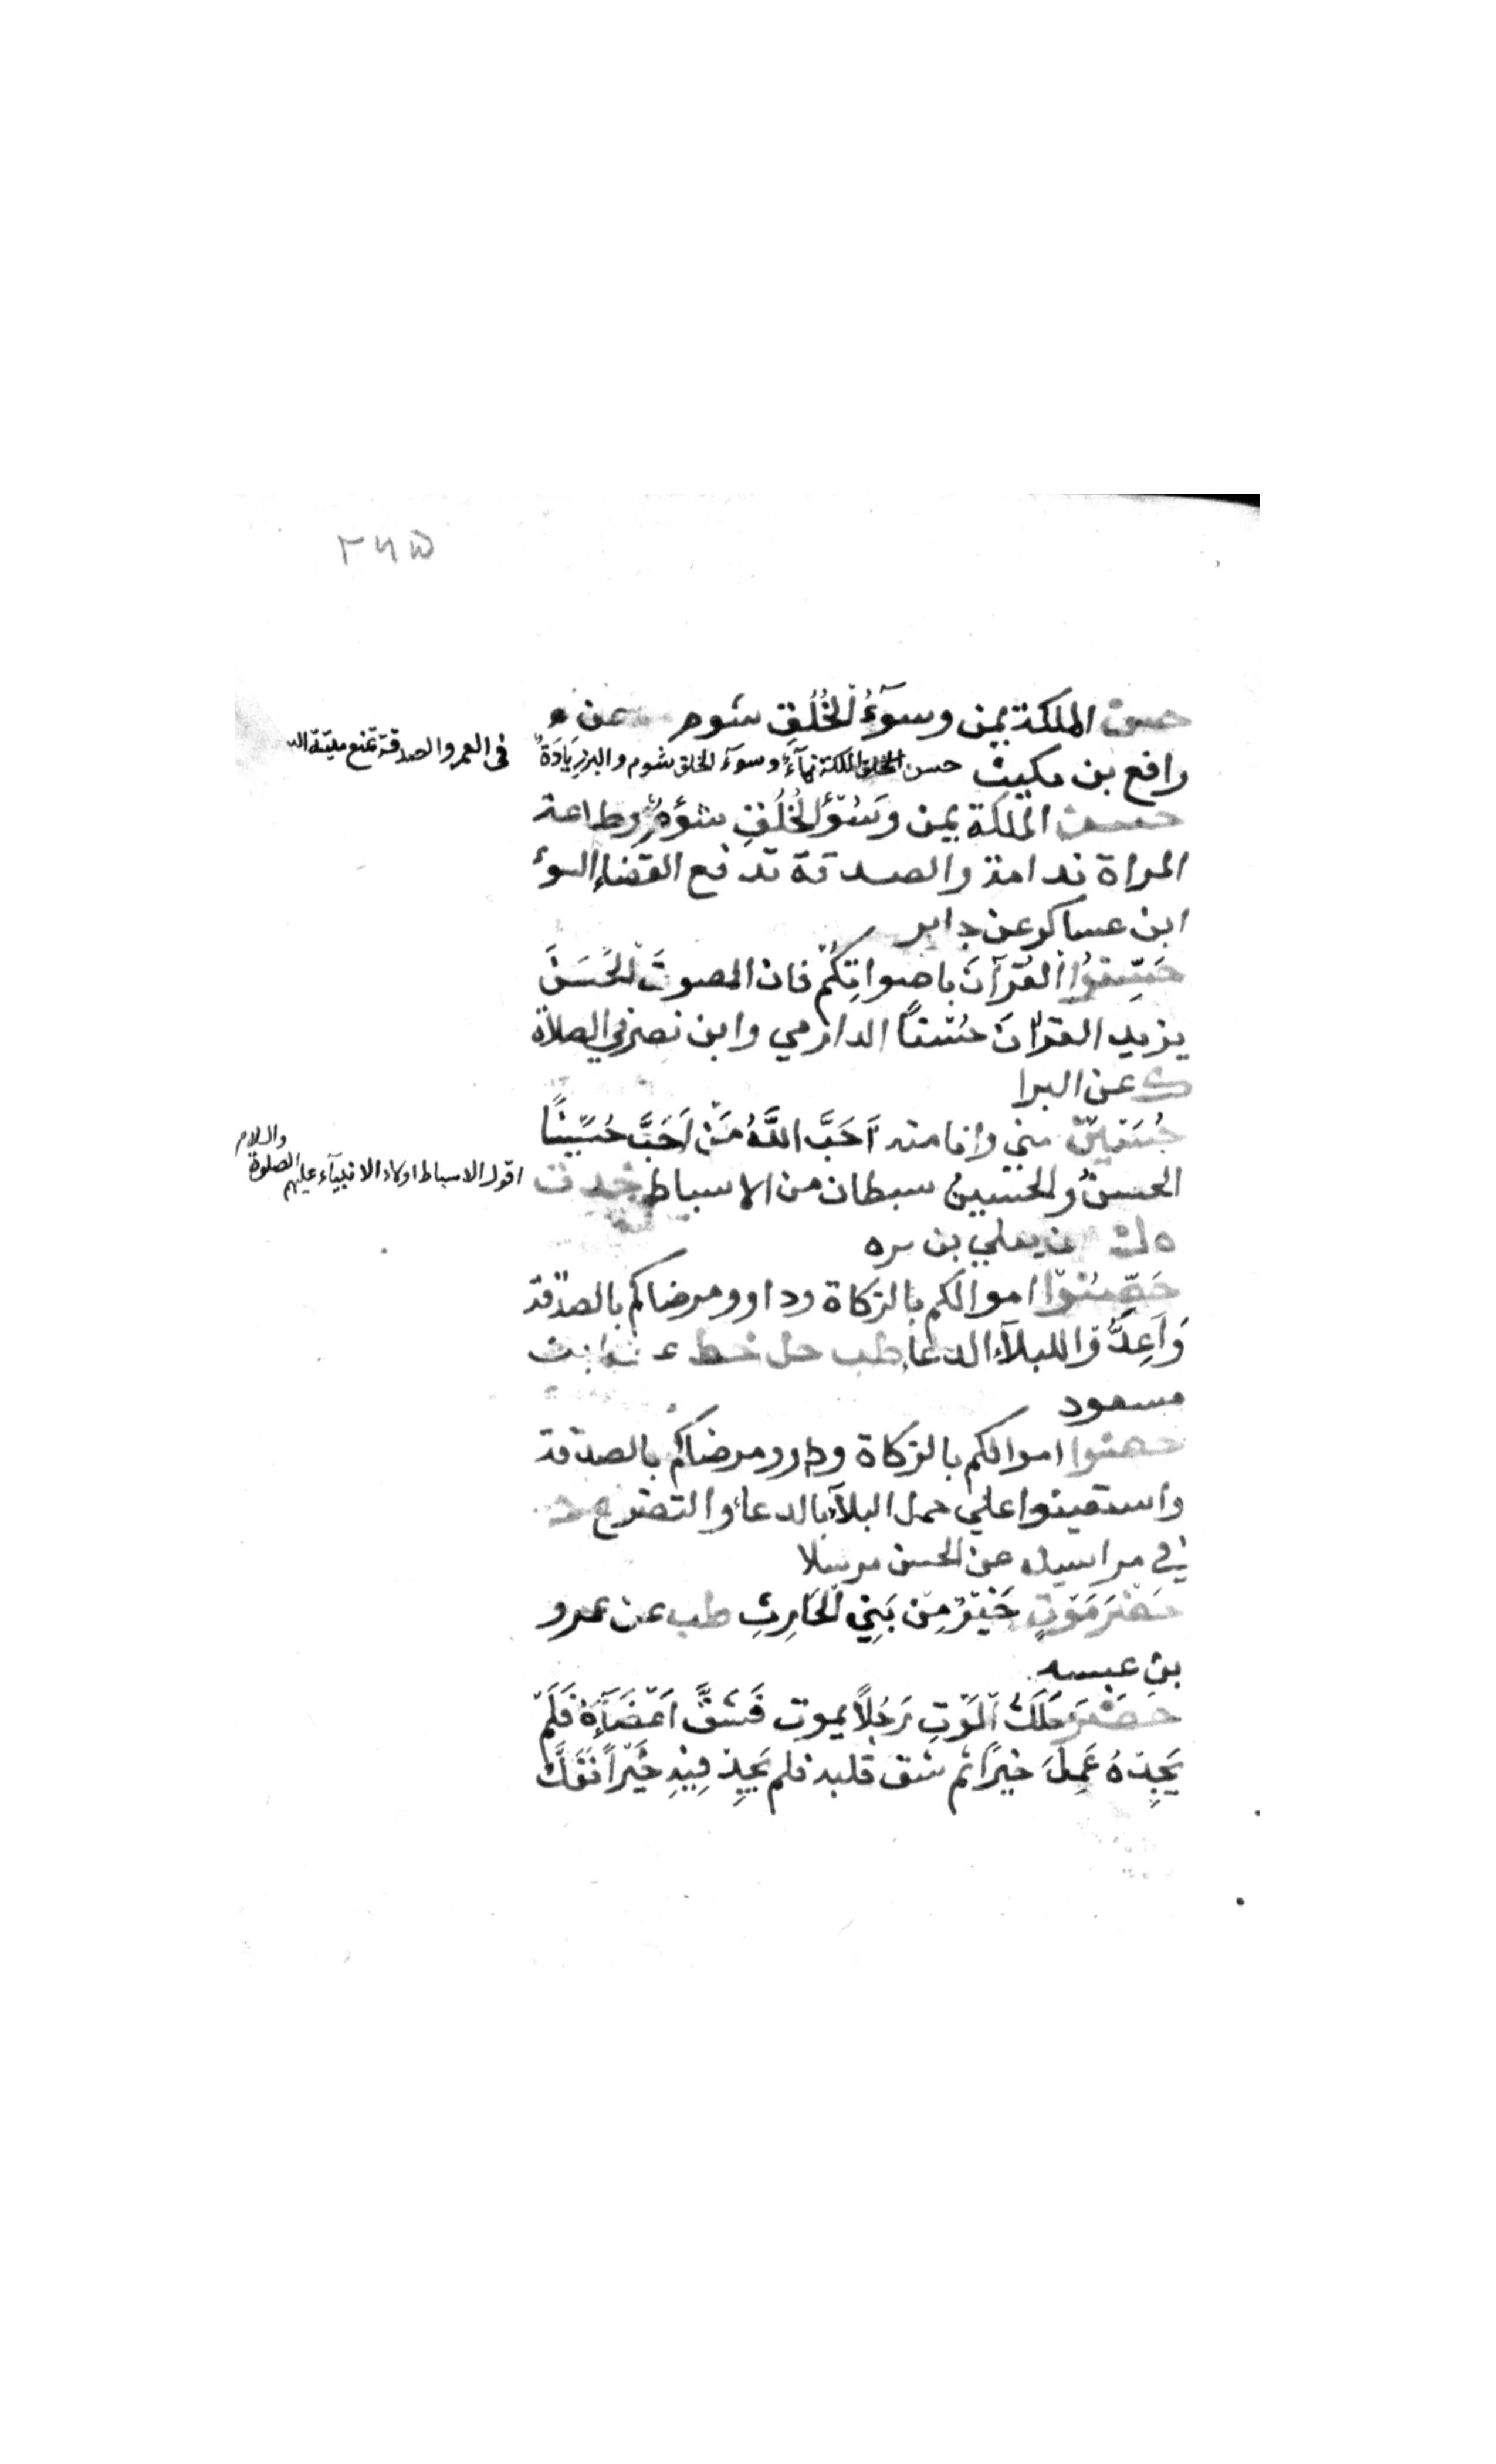 ٢٦٥
حسن الملكة يمن وسوٓءُ الخُلُقِ شوم عن
رافع بن مكيث حسن الملكة نمآءٌ وسوٓء الخلق شوم والبر زيَادَةٌ
فى العمر والصدقة تمنع ميتة الس
حسن الملكة يمن وَسُوْٓءُ الخُلُقِ شُؤْمٌ وطاعة
المراة ندامة والصدقة تدفع القضاء السوٓء
ابن عساكر عن جابر
حَسِّنُوا القُرْآنَ باصواتِكُمْ فان الصوتَ الْحَسَنَ
يزيد القرانَ حُسْناً الدارمي وابن نصر في الصلاة
ك عن البرا
حُسَيْنٌ مني وانا منه اَحَبَّ اللَّهُ مَنْ اَحَبَّ حُسَيْناً
الحسنُ والحُسَينُ سبطان من الاسباط خد ت
اقول الاسباط اولاد الانبيآء عليهم الصلوة
والسلام
ه ك عن يعلي بن مره
حَصِّنُوْا اموالكم بالزكاة وداوو مرضاكم بالصدقة
وَاَعِدُّوْا للبلآء الدعاء طب حل خط عن ابن
مسعود
حصنوا اموالكم بالزكاة وداوو مرضاكم بالصدقة
واستعينوا علي حمل البلآء بالدعاء والتضرع د
في مراسيله عن الحسن مرسلا
حَضْرَمَوْتٍ خَيْرٌ مِنْ بَنِي الْحَارِثِ طب عن عمرو
بن عبسه
حَضَرَ مَلَكُ الْمَوْتِ رَجُلاً يموت فَشَقَّ اَعْضَآءَهُ فَلَمْ
يَجِدْهُ عَمِلَ خيرًا ثم شق قلبه فلم يَجِدْ فِيْهِ خَيْراً فَفَكَّ